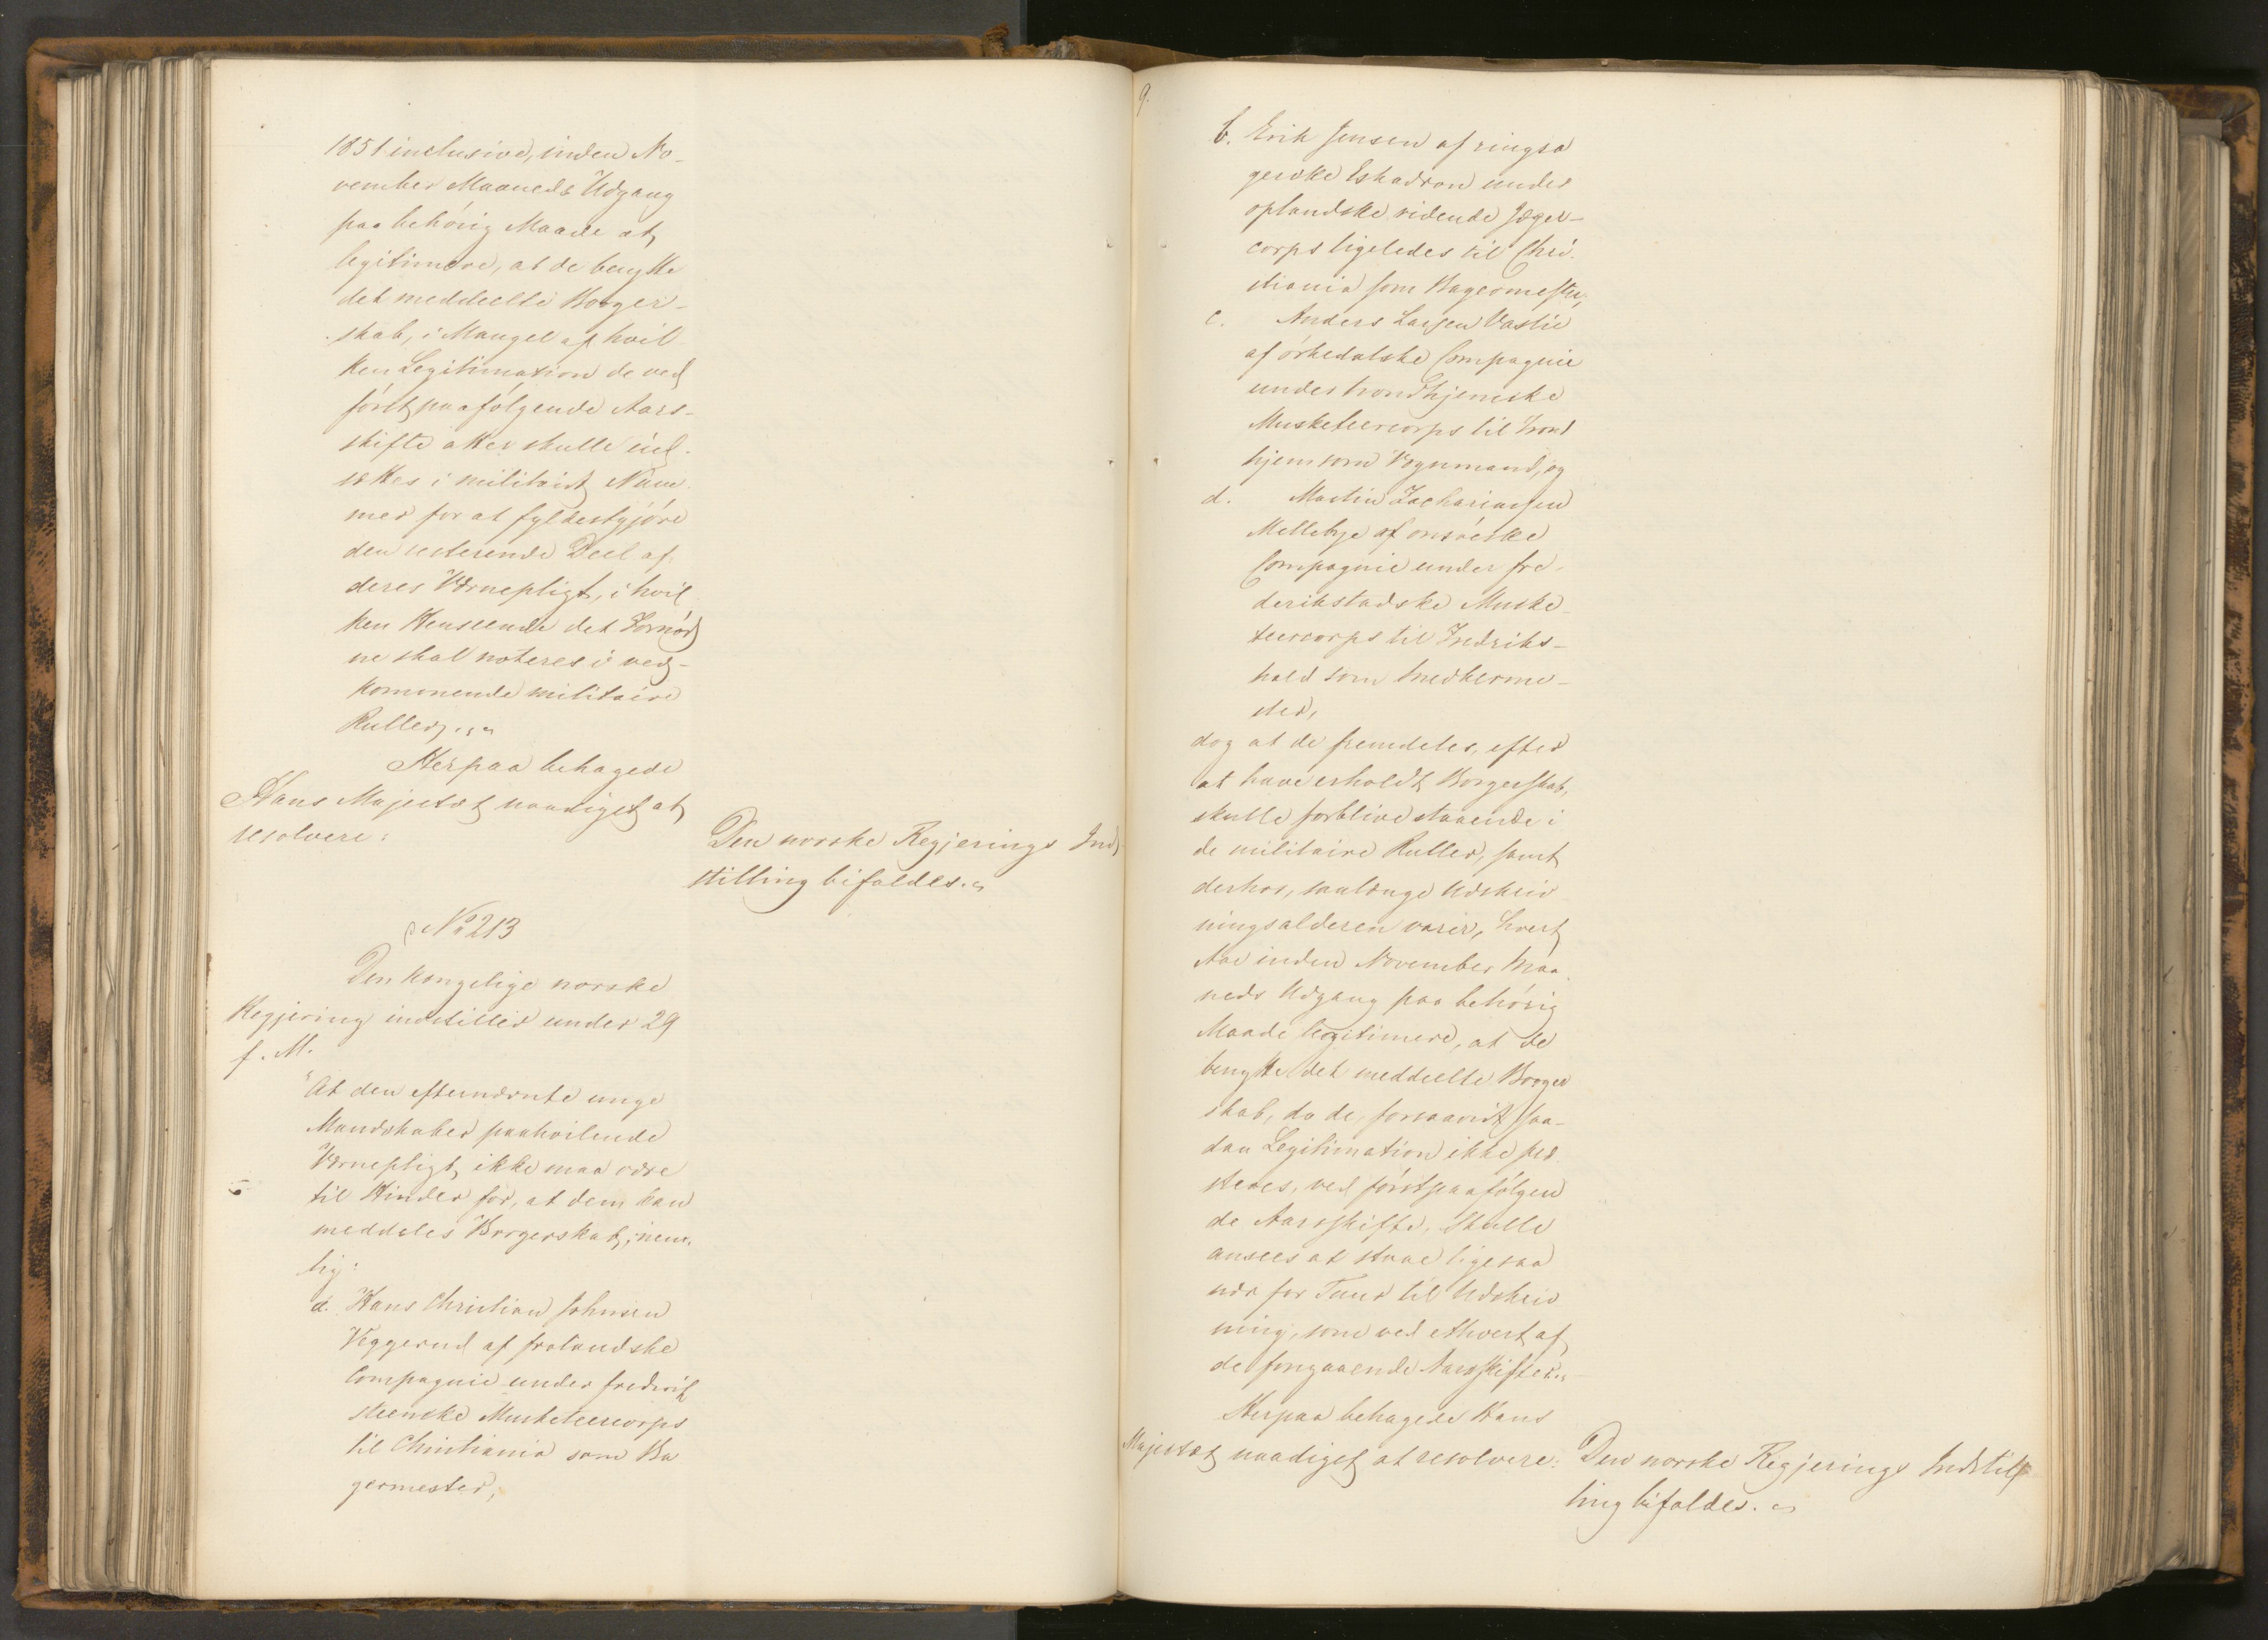 1851 inclusive, inden No-
vember Maaneds Udgang
paa behörig Maade at
legitimere, at de benytte
det meddeelte Borger-
skab, i Mangel af hvil-
ken Legitimation de ved
förstpaafölgende Aars-
skifte atter skulle ind-
sættes i militairt Num-
mer for at fyldestgjöre
den resterende Deel af
deres Værnepligt, i hvil-
ken Henseende det Fornöd
ne skal noteres i ved-
kommende militaire
Ruller."
Herpaa behagede
Hans Majestæt naadigst at
resolvere:
Den norske Regjerings Ind-
stilling bifaldes.
No 213
Den kongelige norske
Regjering indstiller under 29
f. M.
"At den efternævnte unge
Mandskaber paahvilende
Værnepligt ikke maa være
til Hinder for, at dem kan
meddeles Borgerskab, nem-
lig:
a. Hans Christian Johnsen
Veggerud af frolandske
Compagnie under fredrik
steenske Musketeercorps
til Christiania som Ba
germester,
9.
b. Erik Jensen af ringsa
gerske Eskadron under
oplandske ridende Jæger-
corps ligeledes til Chri-
stiania som Bagermester,
c. Anders Larsen Vaslie
af örkedalske Compagnie
under trondhjemske
Musketeercorps til Trond
hjem som Vognmand, og
d. Martin Zachariasen
Mellebye af onsöeske
Compagnie under fre-
derikstadske Muske-
teercorps til Fredriks-
hald som Snedkerme-
ster,
dog at de fremdeles, efter
at have erholdt Borgerskab,
skulle forblive staaende i
de militaire Ruller, samt
derhos, saalænge Udskriv-
ningsalderen varer, hvert
Aar inden November Maa-
neds Udgang paa behörig
Maade legitimere, at de
benytte det meddeelte Borger
skab, da de, forsaavidt saa-
dan Legitimation ikke præ-
steres, ved förstpaafölgen
de Aarsskifte, skulle
ansees at staae ligesaa
nær for Tuur til Udskriv
ning, som ved ethvert af
de foregaaende Aarsskifter."
Herpaa behagede Hans
Majestæt naadigst at resolvere:
Den norske Regjerings Indstil
ling bifaldes.